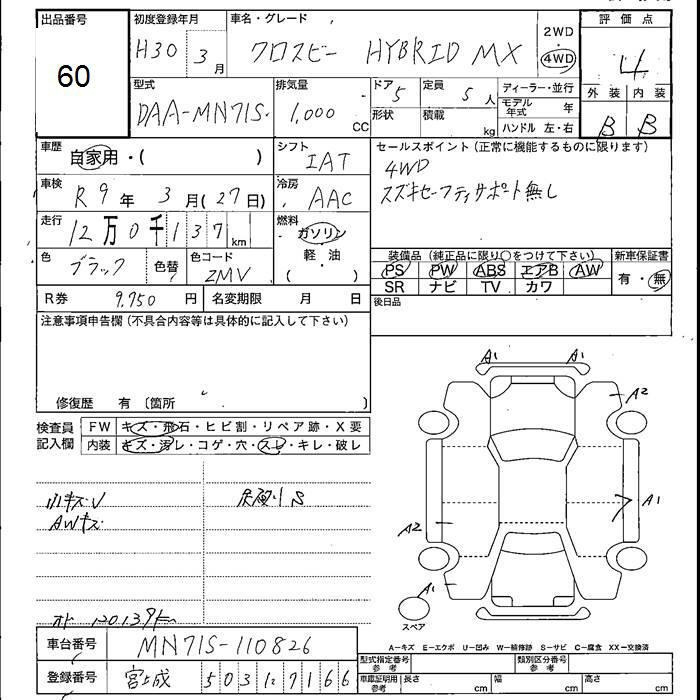 出品番号 初度登録年月 車名・グレード 評価点
60 H30 3月 クロスビー HYBRID MX 2WD 4WD 4
型式 排気量 ドア 5 定員 5人 ディーラー・並行 外装 内装
DAA-MN71S 1,000 CC 形状 積載 kg モデル年式 年 B B
ハンドル 左・右
車歴 自家用・( ) シフト IAT セールスポイント (正常に機能するものに限ります)
車検 R9年 3月(27日) 冷房 AAC 4WD
スズキセーフティサポート無し
走行 12万0千137km 燃料 ガソリン
軽・油
( )
色 ブラック 色替 色コード ZMV 装備品 (純正品に限り○をつけて下さい) 新車保証書
PS PW ABS エアB AW 有・無
SR ナビ TV カワ
R券 9,750円 名変期限 月 日 後日品
注意事項申告欄 (不具合内容等は具体的に記入して下さい)
修復歴 有 〔箇所 〕
検査員記入欄 FW キズ・飛石・ヒビ割・リペア跡・X要
内装 キズ・汚レ・コゲ・穴・スレ・キレ・破レ
小キズU S
AWキズ
A1 A1
A2
A1
A2
A1
スペア
A-キズ E-エクボ U-凹み W-補修跡 S-サビ C-腐食 XX-交換済
車台番号 MN71S-110826
型式指定番号 参考 類別区分番号 参考
登録番号 宮城 503 7166
車庫証明用 参考 長さ cm 幅 cm 高さ cm